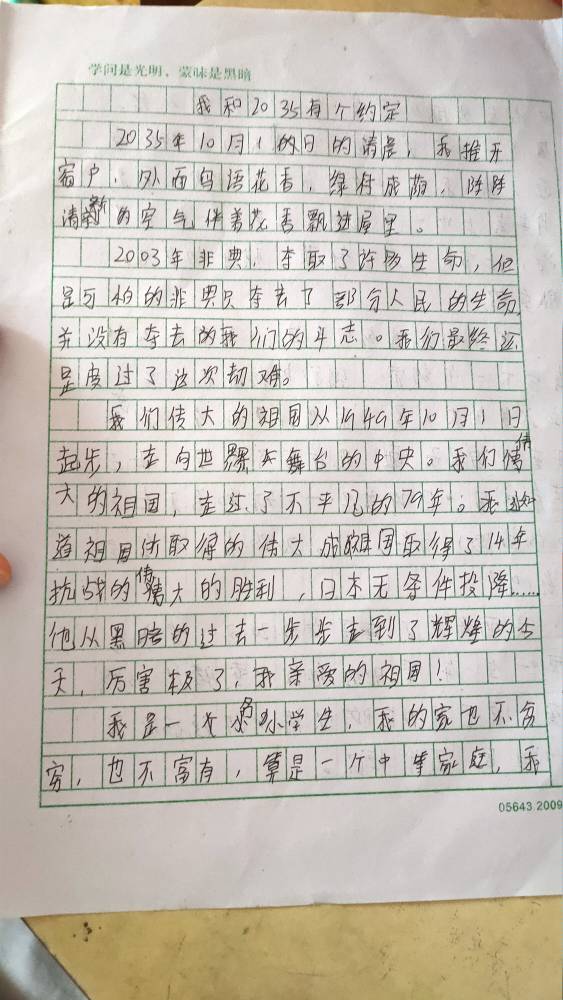 学问是光明，蒙昧是黑暗
我和2035有个约定
2035年10月1的日的清晨，我推开
窗户，外面鸟语花香，绿树成荫，阵阵
清新的空气伴着花香飘进屋里。
2003年非典，夺取了许多生命，但
是可怕的非典只夺去了部分人民的生命
并没有夺去的我们的斗志。我们最终还
是度过了这次劫难。
我们伟大的祖国从1949年10月1日
起步，走向世界大舞台的中央。我们伟
大的祖国，走过了不平凡的79年。我知
道祖国所取得的伟大成就国取得了14年
抗战的伟大的胜利，日本无条件投降……
他从黑暗的过去一步步走到了辉煌的今
天，厉害极了，我亲爱的祖国！
我是一个名小学生，我的家也不贫
穷，也不富有，算是一个中等家庭，我
05643.2009